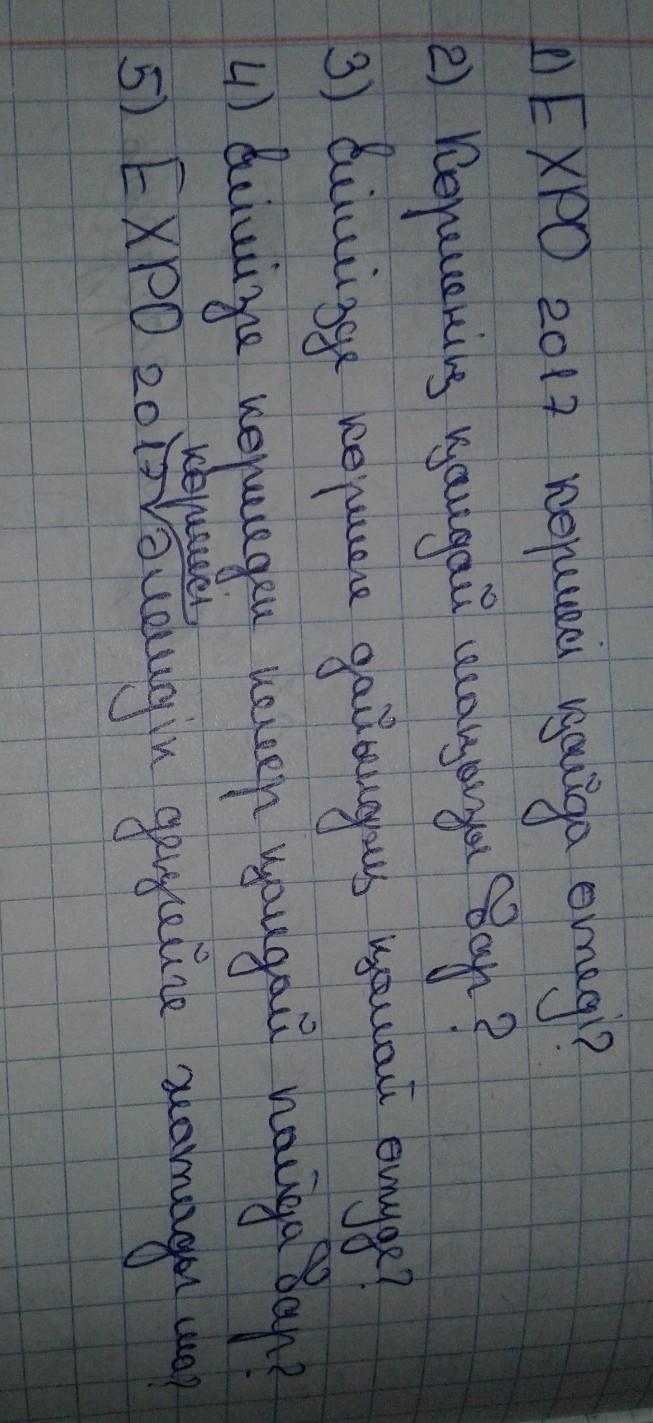 1) EXPO 2017 көрмесі қайда өтеді?
2) Көрменің қандай маңызы бар?
3) Елімізде көрмеге дайындық қалай өтуде?
4) Елімізге көрмеден келер қандай пайда бар?
5) EXPO 2017 көрмесі әлемдік деңгейге жатады ма?